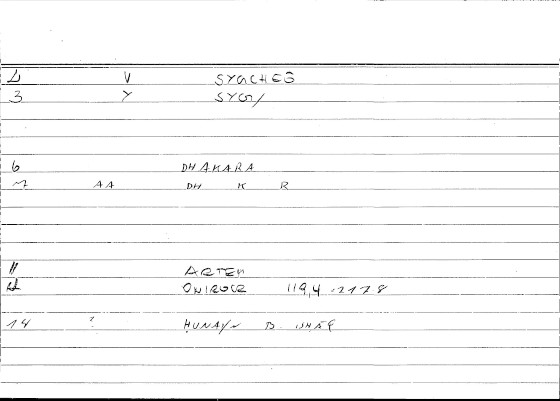 2 V SYGCHEG
3 Y SYG/
6 DHAKARA
7 AA DH K R
11 ARTEM
12 ONIROCR 119,4 -
14 ? HUNAYN B. ISHĀQ